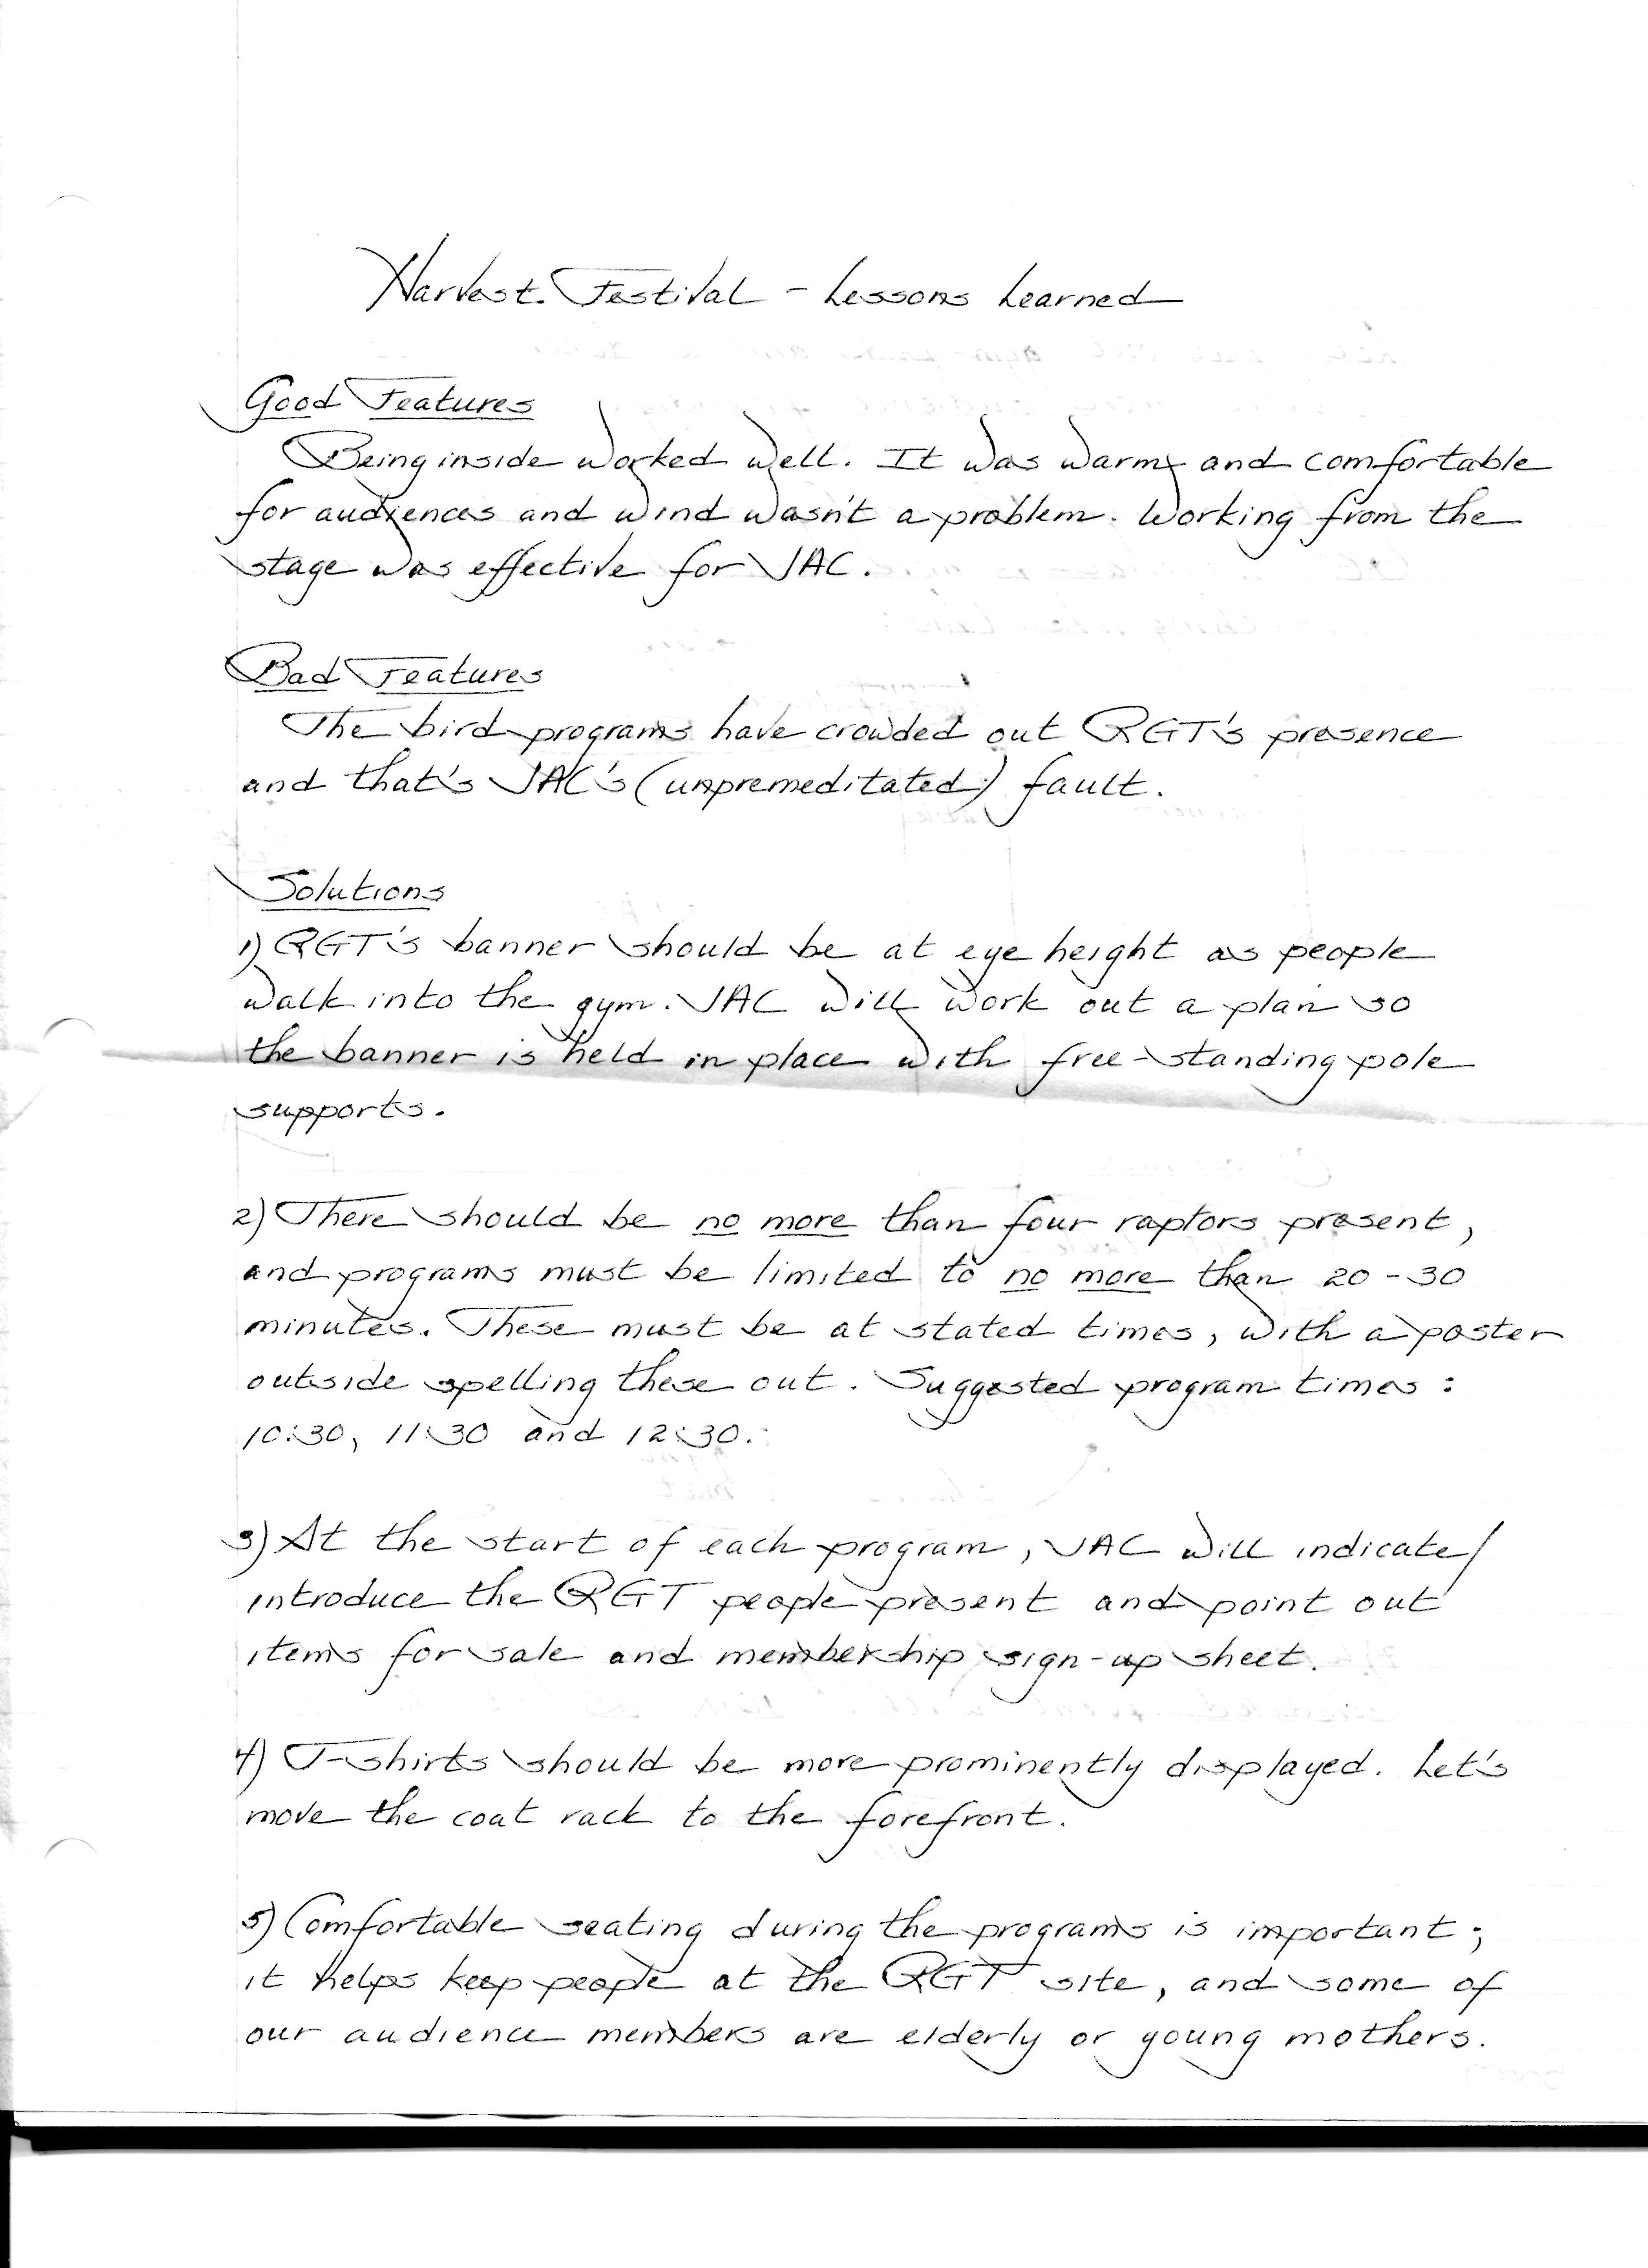 Harvest Festival - Lessons Learned
Good Features
Being inside worked well. It was warm and comfortable
for audiences and wind wasn't a problem. Working from the
stage was effective for JAC.
Bad Features
The bird programs have crowded out RGT's presence
and that's JAC's (unpremeditated) fault.
Solutions
1) RGT's banner should be at eye height as people
walk into the gym. JAC will work out a plan so
the banner is held in place with free-standing pole
supports.
2) There should be no more than four raptors present,
and programs must be limited to no more than 20-30
minutes. These must be at stated times, with a poster
outside spelling these out. Suggested program times:
10:30, 11:30 and 12:30.
3) At the start of each program, JAC will indicate/
introduce the RGT people present and point out
items for sale and membership sign-up sheet.
4) T-shirts should be more prominently displayed. Let's
move the coat rack to the forefront.
5) Comfortable seating during the programs is important;
it helps keep people at the RGT site, and some of
our audience members are elderly or young mothers.